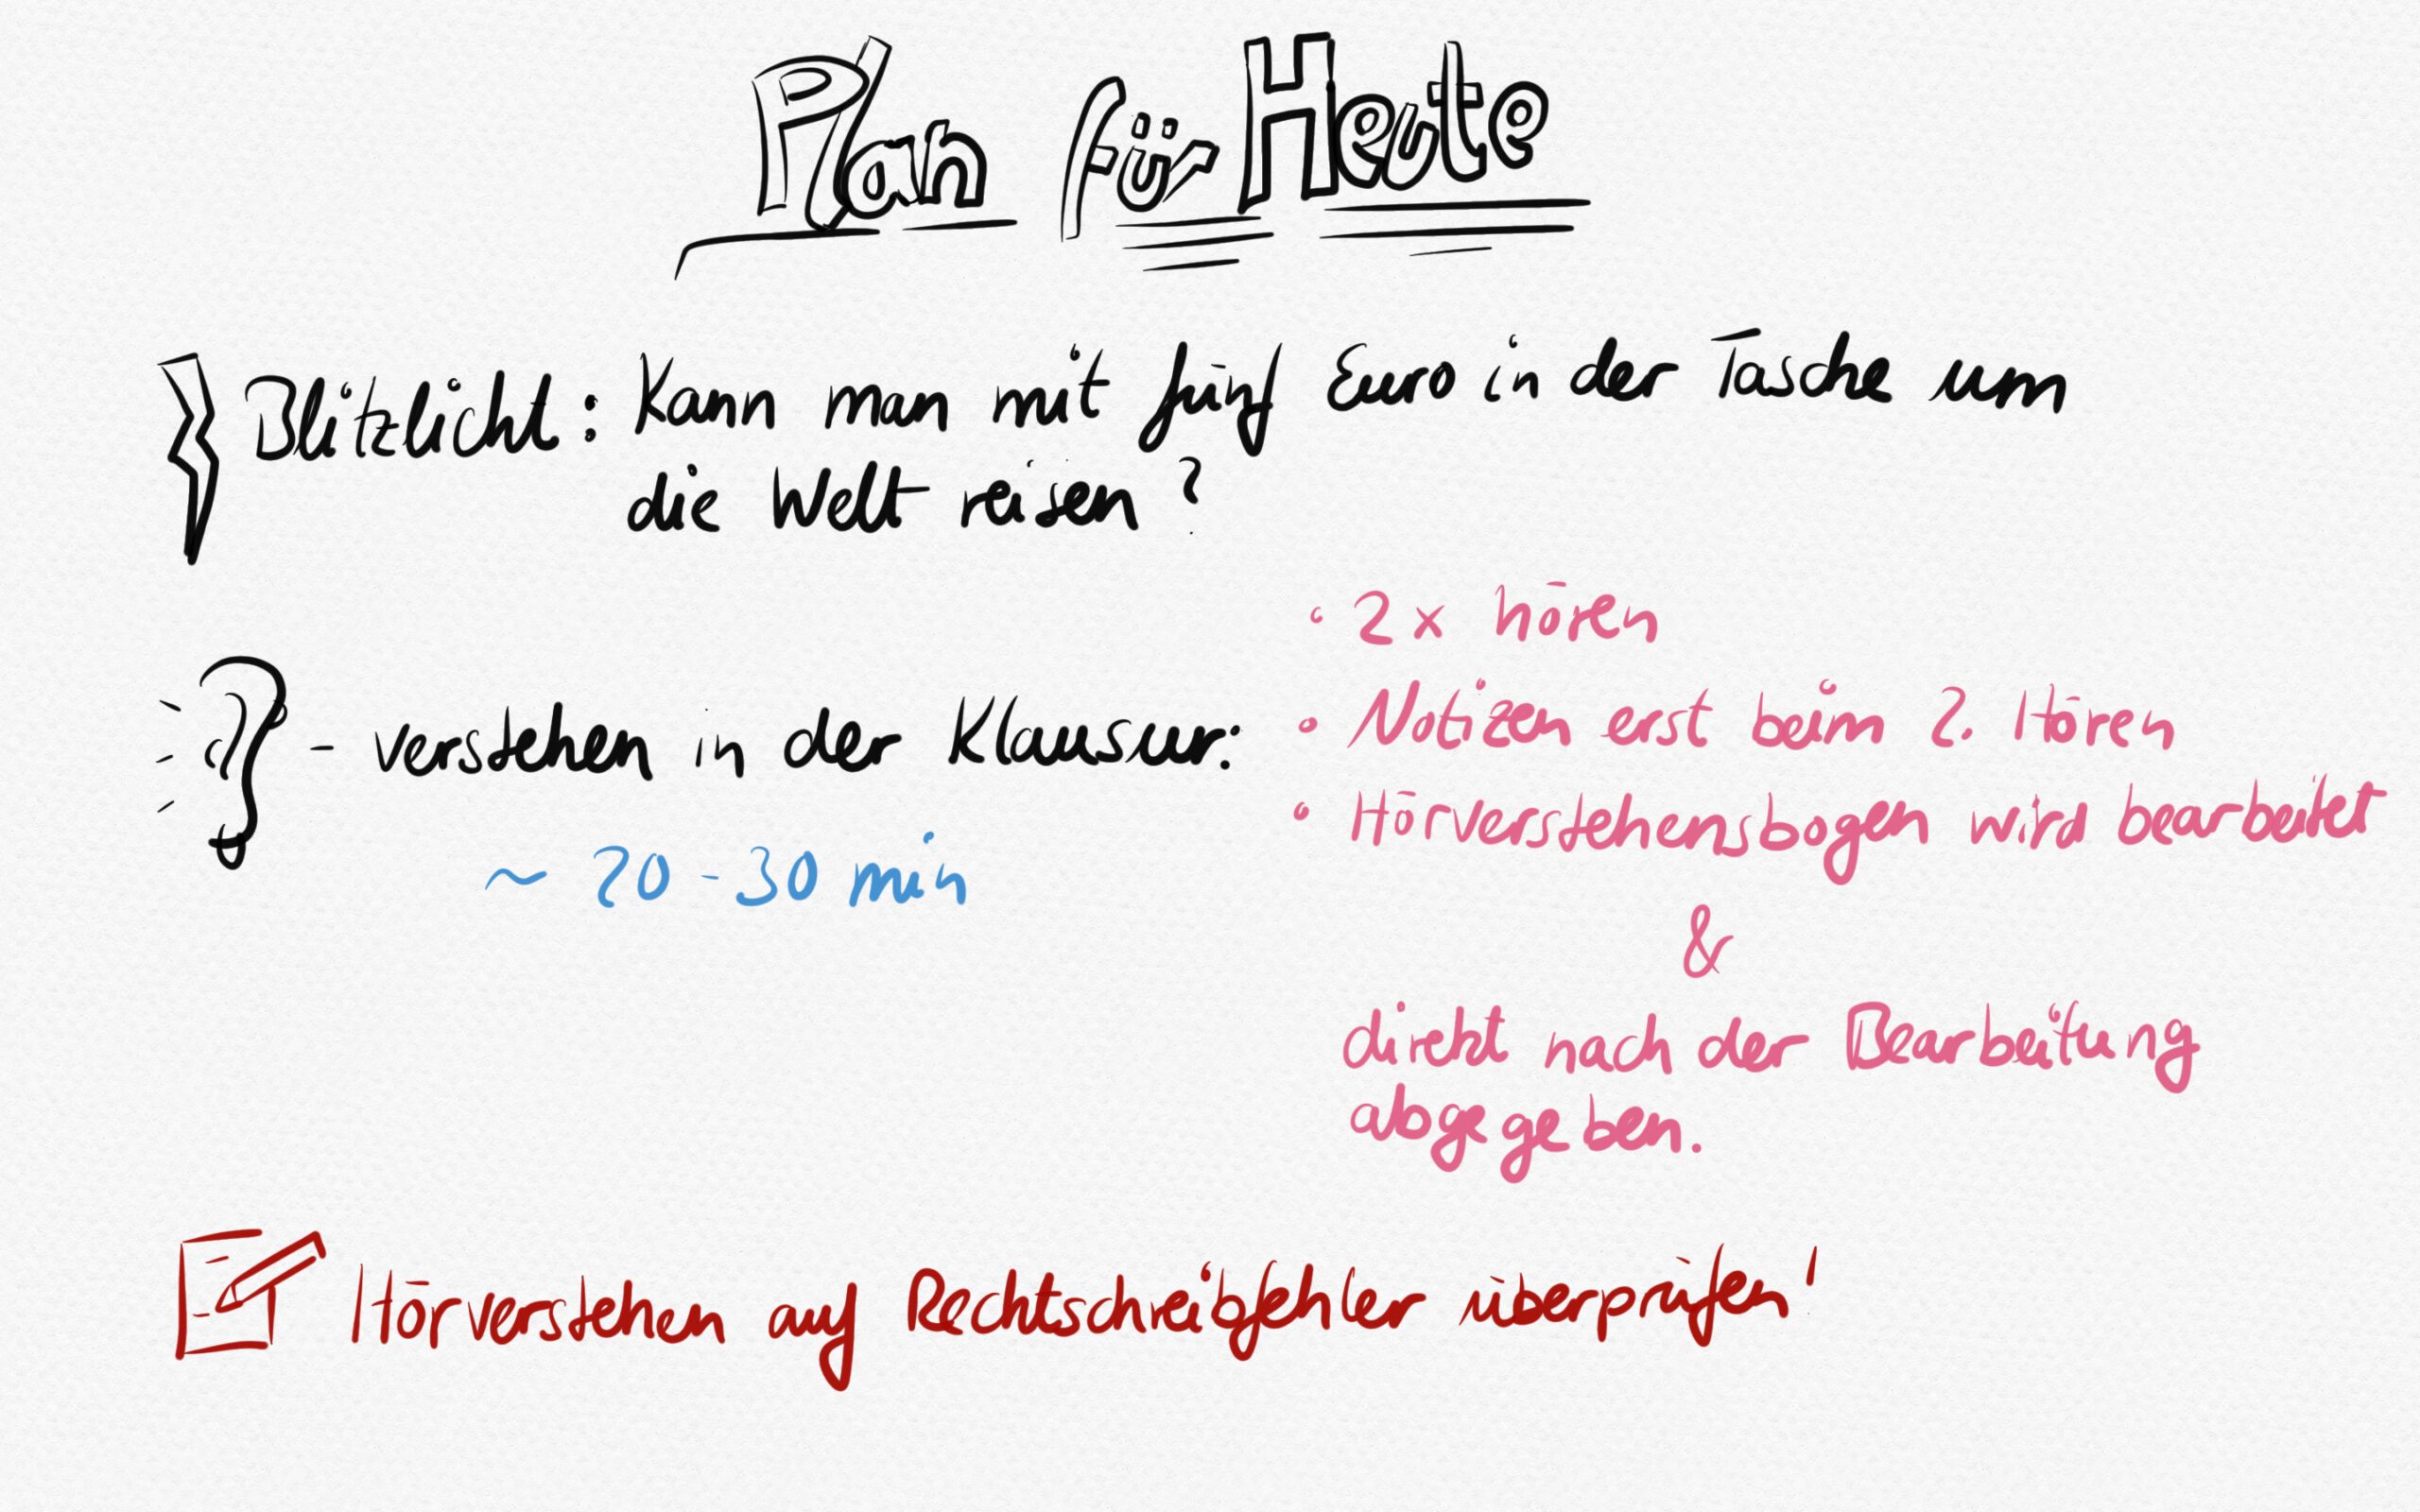 Plan für Heute
Blitzlicht: Kann man mit fünf Euro in der Tasche um
die Welt reisen?
- verstehen in der Klausur:
~ 20 - 30 min
• 2x hören
• Notizen erst beim 2. Hören
• Hörverstehensbogen wird bearbeitet
&
direkt nach der Bearbeitung
abgegeben.
Hörverstehen auf Rechtschreibfehler überprüfen!